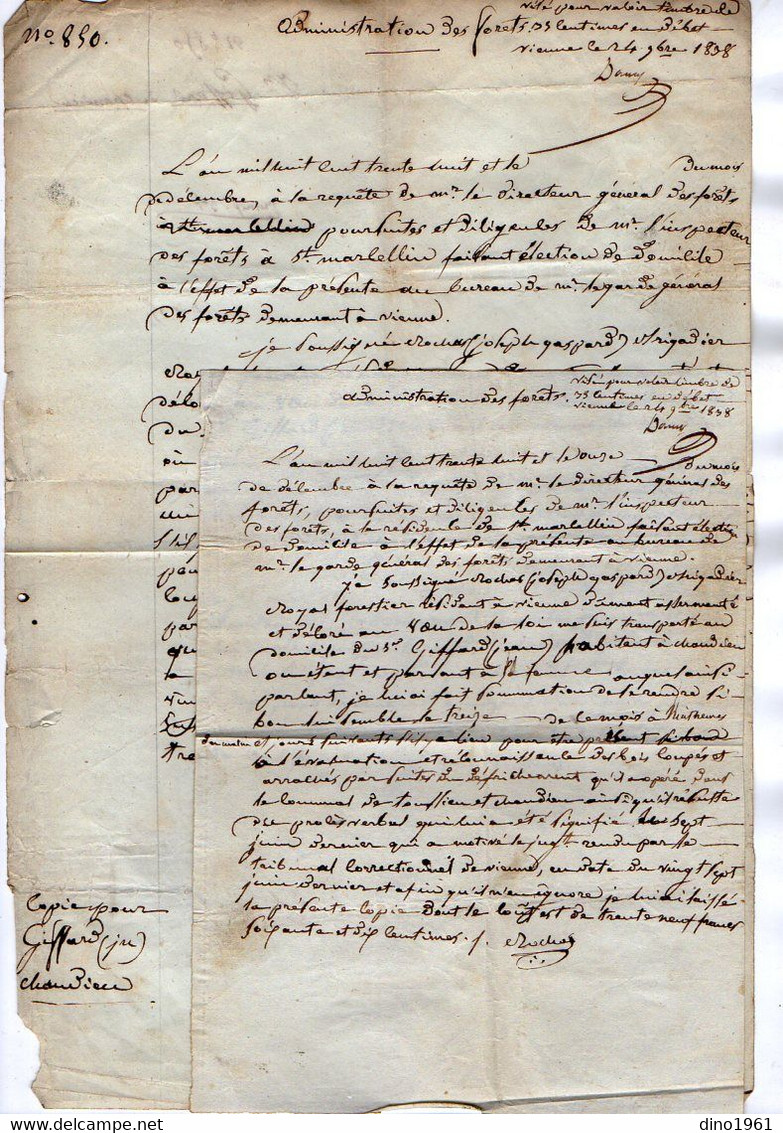 No. 850.
visé pour valoir timbre de
Administration des forêts. 75 centimes en débet
vienne le 24 9bre 1838
L'an mil huit cent trente huit et le du mois
de décembre, à la requête de mr. le directeur général des forêts
poursuites et diligences de mr. l'inspecteur
des forêts à st. marcellin faisant élection de domicile
à l'effet de la présente au bureau de mr. le garde général
des forêts demeurant à vienne.
je soussigné Rochas (joseph gaspard) Brigadier
visé pour valoir timbre de
administration des forêts. 75 centimes en débet
vienne le 24 9bre 1838
L'an mil huit cent trente huit et le onze du mois
de décembre à la requête de mr. le directeur général des
forêts, poursuites et diligences de mr. l'inspecteur
des forêts, à la résidence de st. marcellin faisant élection
de domicile à l'effet de la présente au bureau de
mr. le garde général des forêts demeurant à vienne.
je soussigné Rochas (joseph gaspard) Brigadier
Royal forestier résidant à vienne dûment assermenté
et décoré au vœu de la loi me suis transporté au
domicile du sr. Giffard (jean) habitant à chandieu
où étant et parlant à sa femme auquel ainsi
parlant, je lui ai fait sommation de se rendre si
bon lui semble le treize de ce mois à huit heures
du matin et jours suivants s'il y a lieu pour être présent si bon
à l'évaluation et reconnaissance des bois coupés et
arrachés par suites du défrichement qu'il a opéré dans
le communal de toussieu et chandieu ainsi qu'il résulte
du procès verbal qui lui a été signifié le sept
juin dernier qui a motivé le jugt. rendu par le
tribunal correctionnel de vienne, en date du vingt sept
juin dernier et afin qu'il n'en ignore je lui ai laissé
la présente copie dont le coût est de trente neuf francs
soixante et dix centimes. Rochas
copie pour
Giffard (jn)
chandieu
dino1961